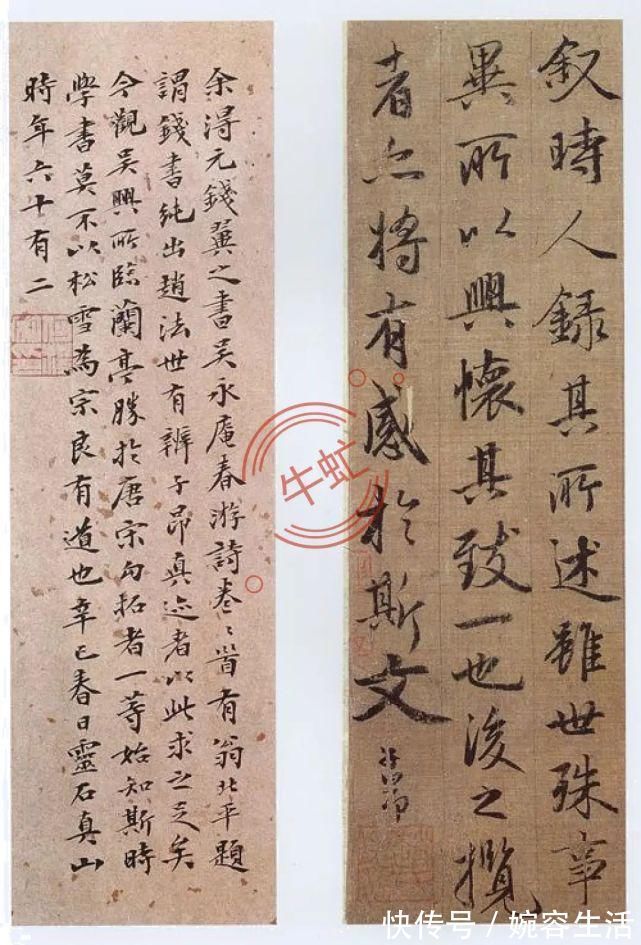 叙時人錄其所述雖世殊事
異所以興懷其致一也後之攬
者亦將有感於斯文
余得元錢翼之書吳永庵春游詩卷〻首有翁北平題
謂錢書純出趙法世有辨子昂真迹者以此求之足矣
今觀吳興所臨蘭亭勝於唐宋勾拓者一等始知斯時
學書莫不以松雪為宗良有道也辛巳春日靈石真山
時年六十有二
牛虹
快传号 / 婉容生活